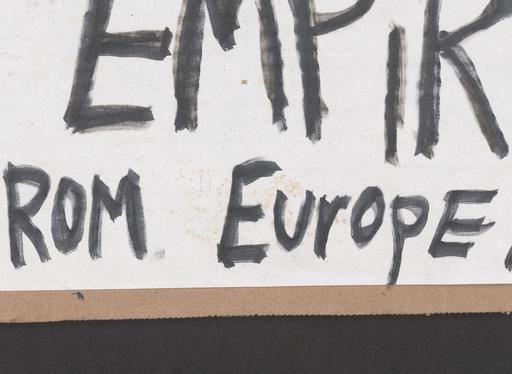 EMPIR
ROM EuropE